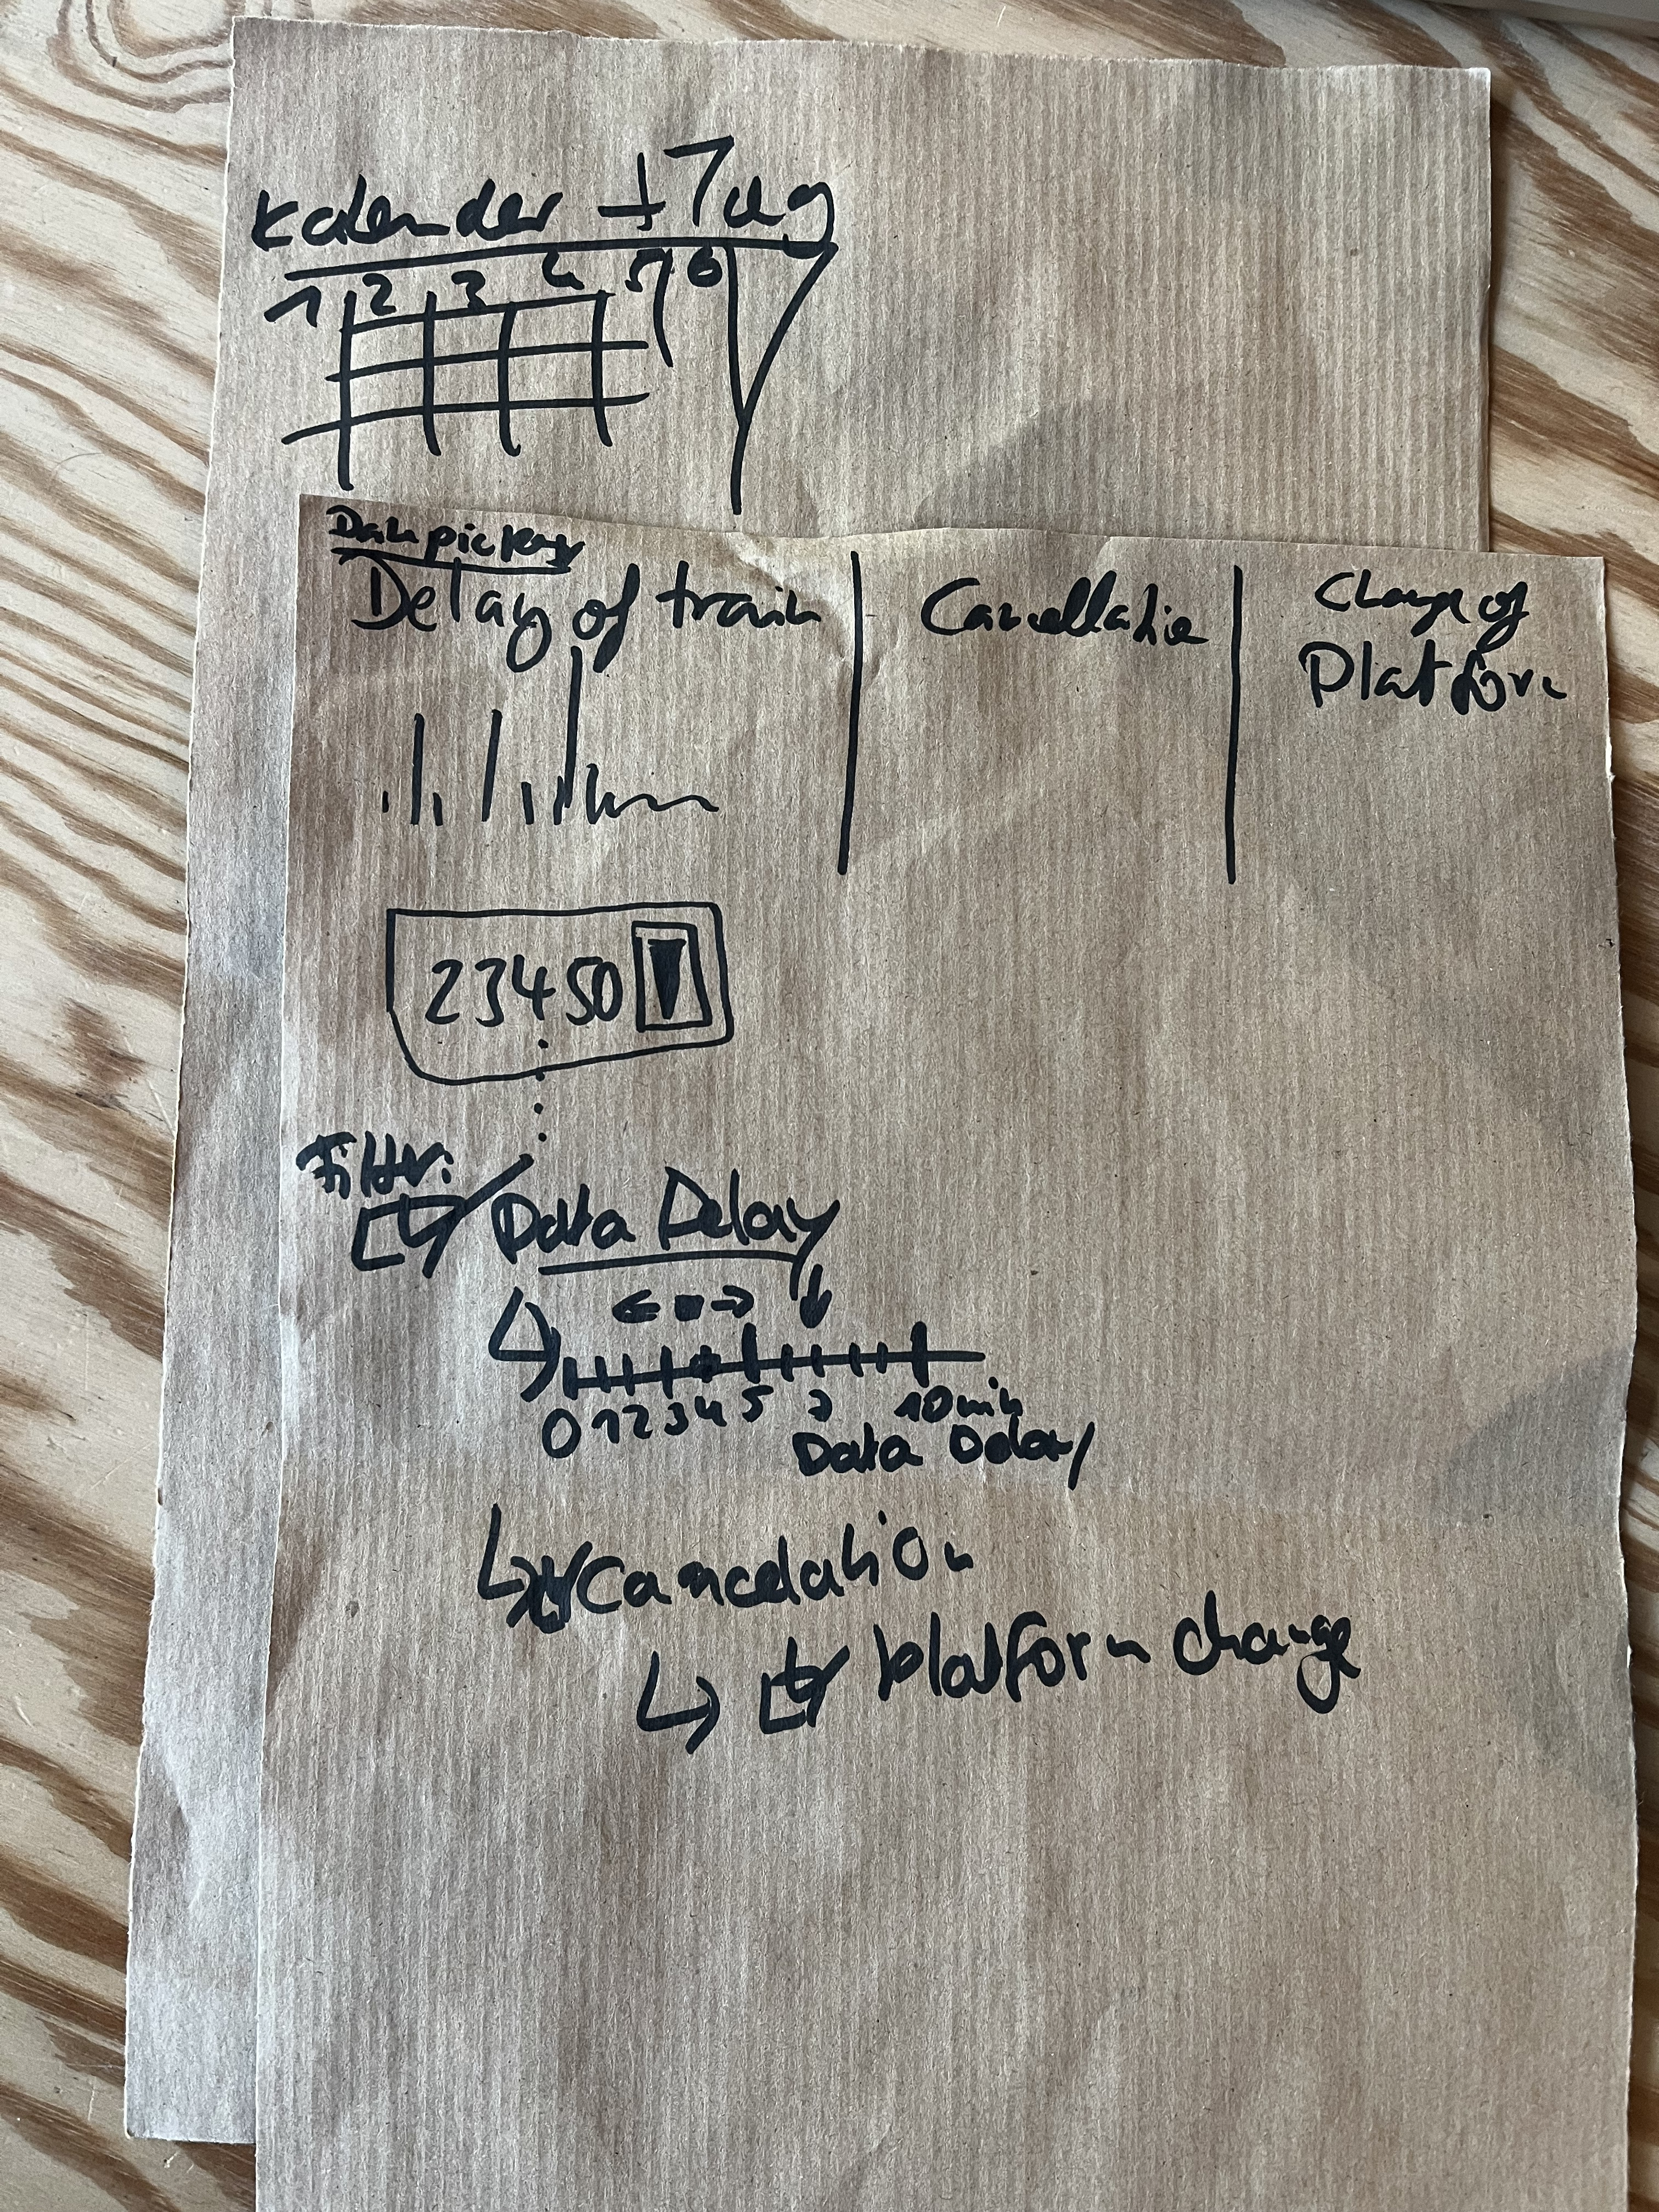 Kalender ±7 Tag
1 2 3 4 5 6 7
Datepicker
Delay of train
Cancellatio
Change of
Platform
23450
Filter:
Data Delay
0 1 2 3 4 5 10 min
Data Delay
Cancelation
Platform change